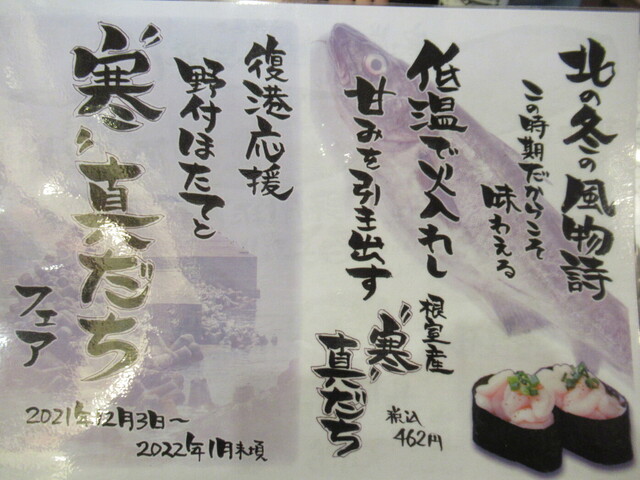 北の冬の風物詩
この時期だからこそ
味わえる
低温で火入れし
甘みを引き出す
根室産
寒
真だち
税込
462円
復港応援
野付ほたてと
寒真だち
フェア
2021年12月3日～
2022年1月末頃